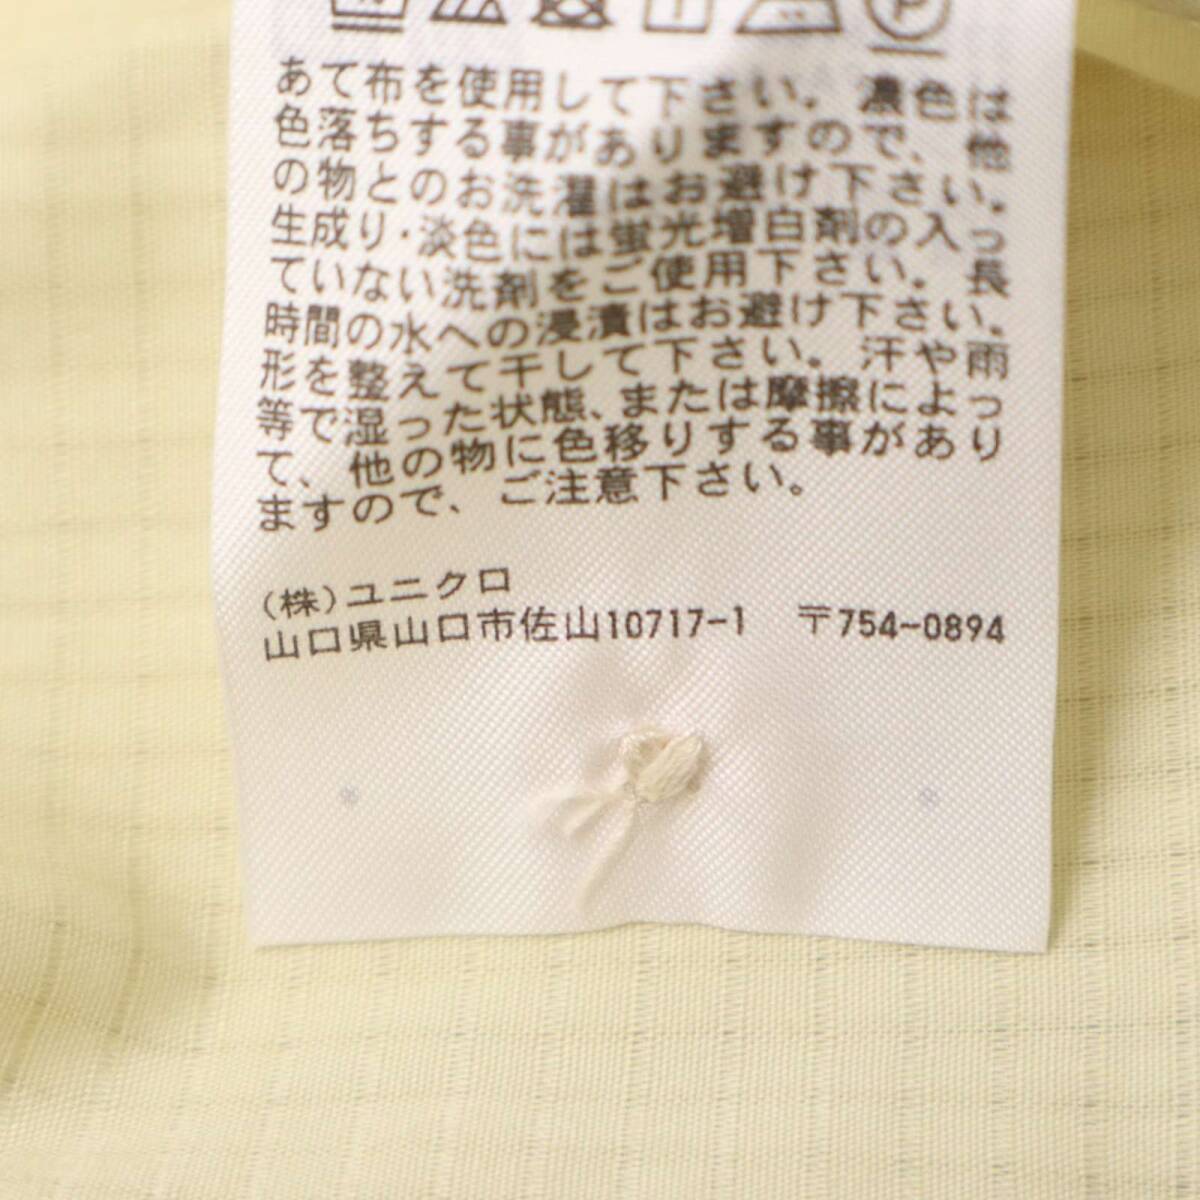 P
あて布を使用して下さい。濃色は
色落ちする事がありますので、他
の物とのお洗濯はお避け下さい。
生成り・淡色には蛍光増白剤の入っ
ていない洗剤をご使用下さい。長
時間の水への浸漬はお避け下さい。
形を整えて干して下さい。汗や雨
等で湿った状態、または摩擦によっ
て、他の物に色移りする事があり
ますので、ご注意下さい。
(株)ユニクロ
山口県山口市佐山10717-1 〒754-0894